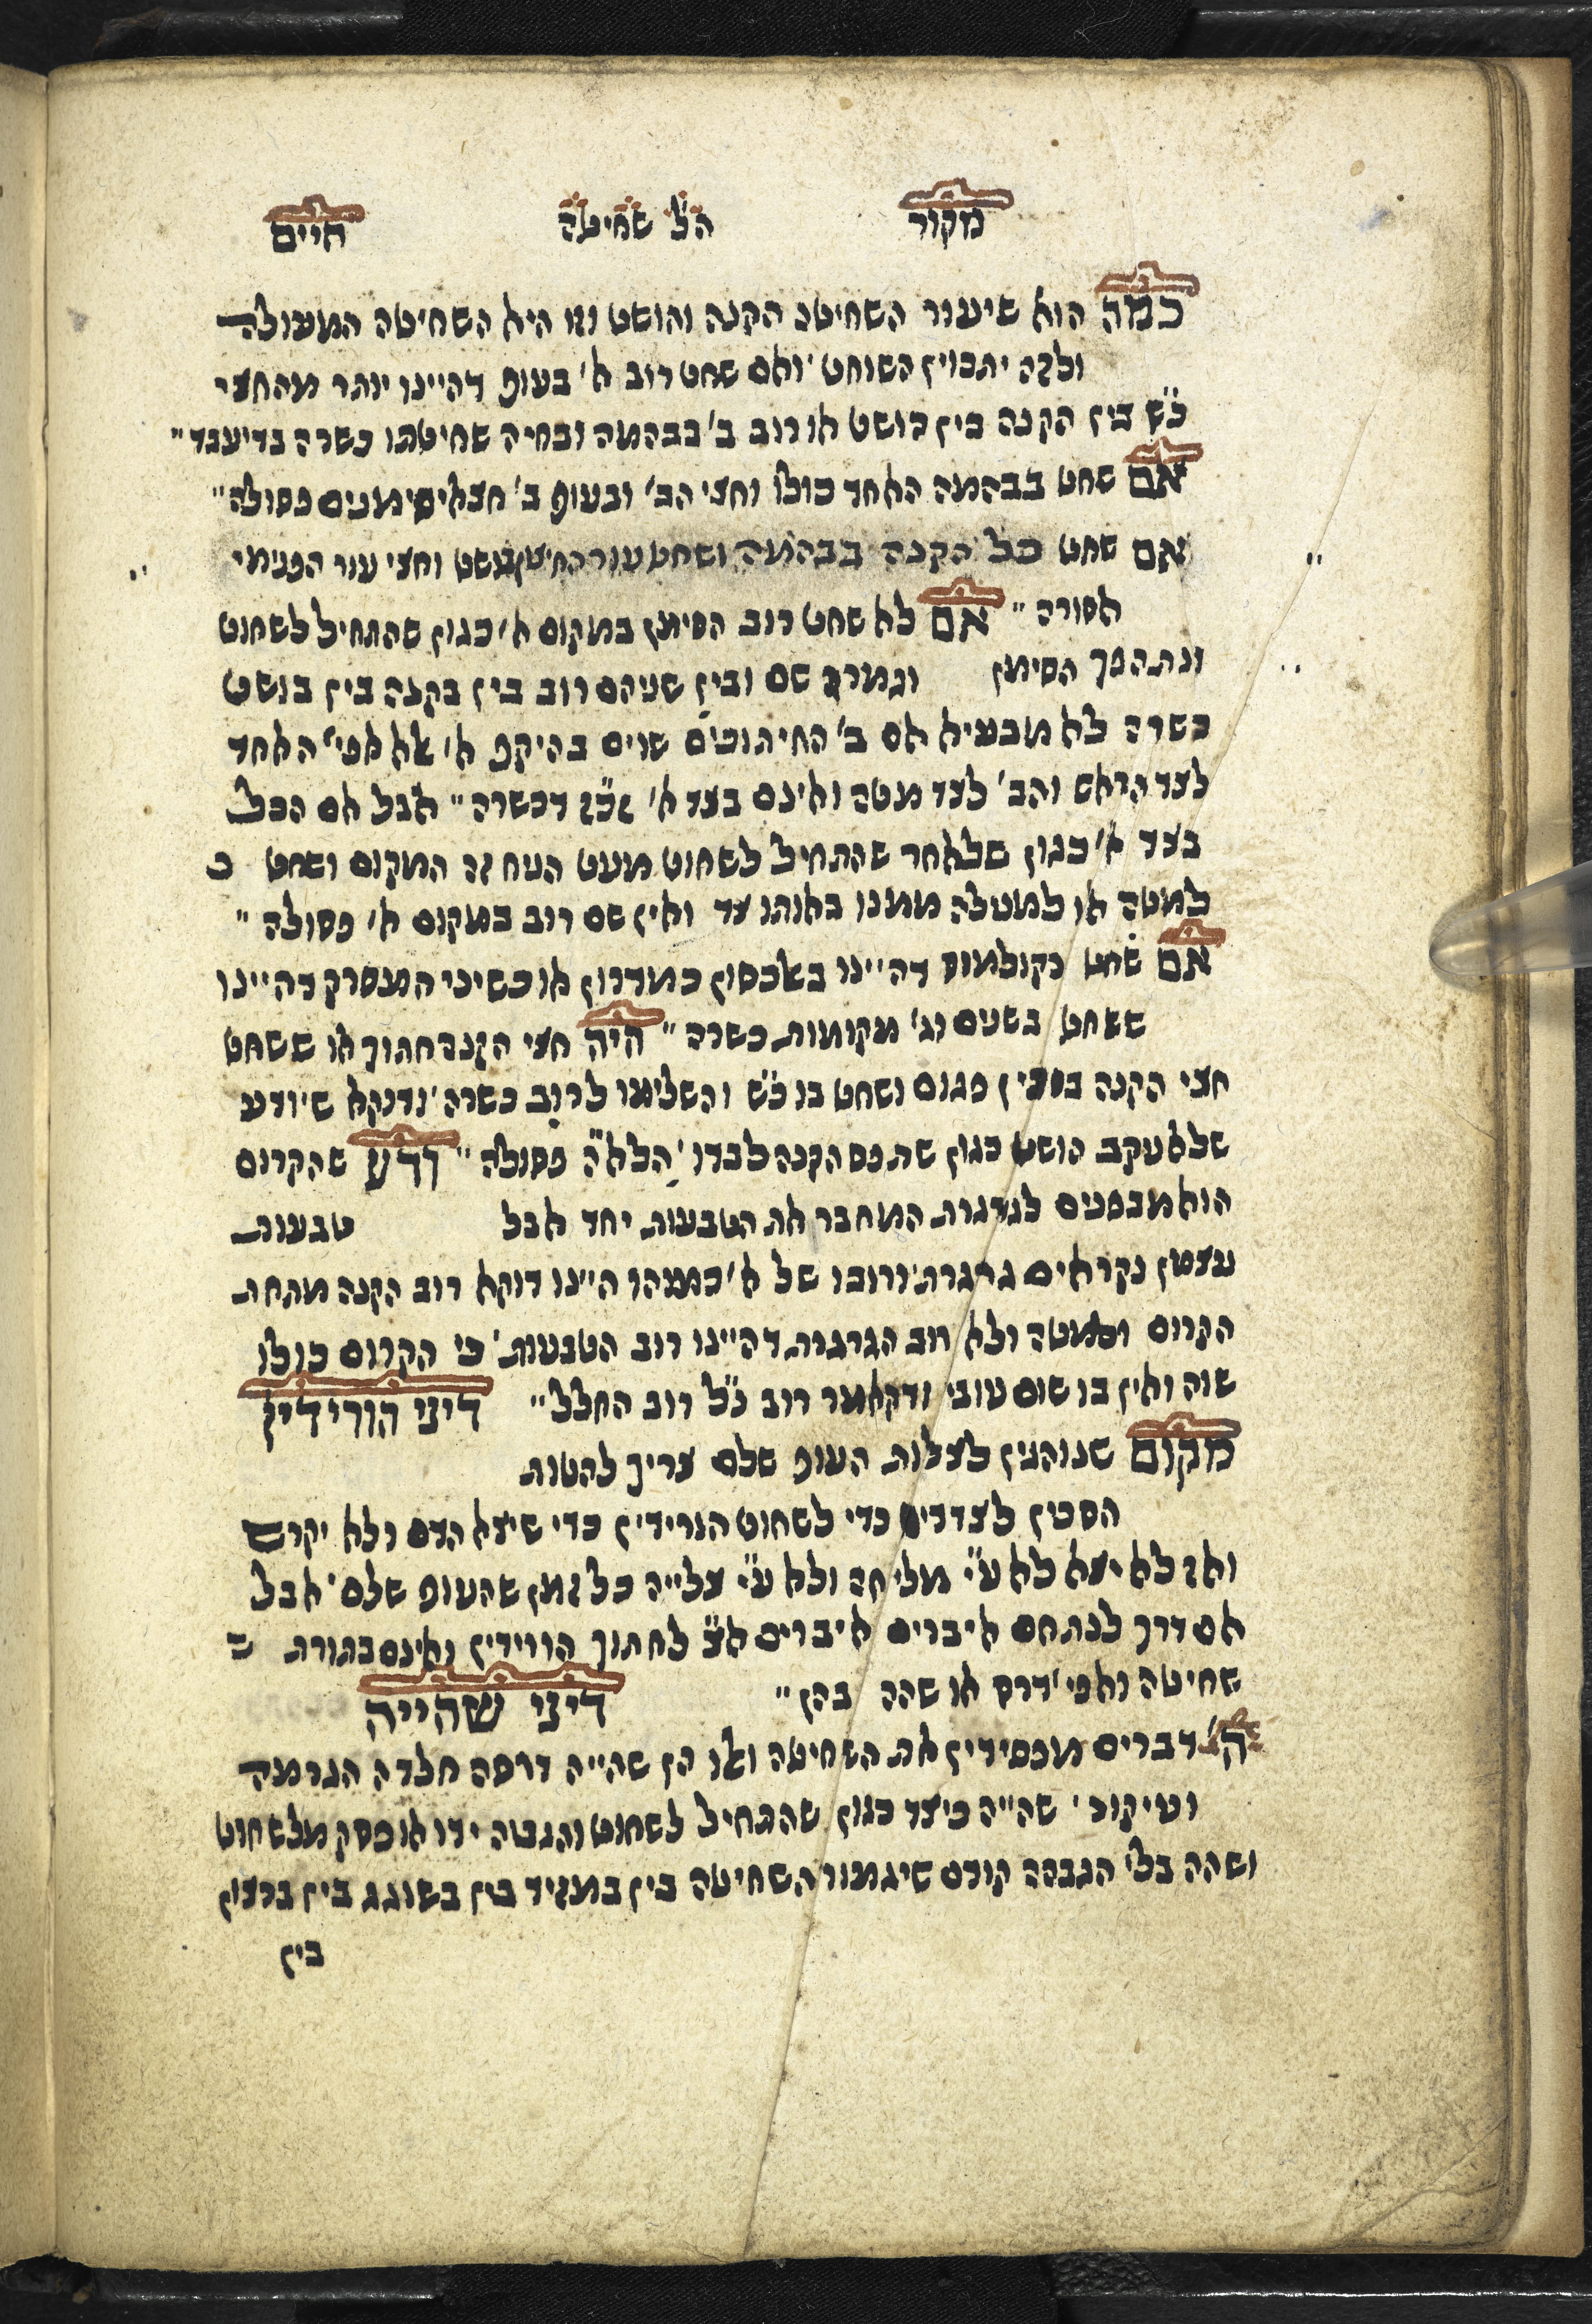 מקור הל' שחיטה חיים
כמה הוא שיעור השחיטה הקנה והושט וזו היא השחיטה המעולה
ולזה יתכוין השוחט ' ואם שחט רוב א' בעוף דהיינו יותר מהחצי
כ"ש בין הקנה בין הושט או רוב ב' בבהמה ובחיה שחיטתו כשרה בדיעבד "
אם שחט בבהמה האחד כולו וחצי הב' ובעוף ב' חצאי סימנים פסולה "
אם שחט כל הקנה בבהמה ושחט עור החיצון בושט וחצי עור הפנימי
אסורה " אם לא שחט רוב הסימן במקום א' כגון שהתחיל לשחוט
ונתהפך הסימן וגמרה שם ובין שניהם רוב בין בקנה בין בושט
כשרה לא מבעיא אם ב' החיתוכים שוים בהיקף א' אלא אפי' האחד
לצד הראש והב' לצד מטה ואינם בצד א' זכ"ז דכשרה " אבל אם הכל
בצד א' כגון שלאחר שהתחיל לשחוט מעט הניח זה המקום ושחט כ
למטה או למעלה ממנו באותו צד ואין שם רוב במקום א' פסולה "
אם שחט כקולמוס דהיינו באלכסון כמדרון או כשיני המסרק דהיינו
ששחט בשנים וג' מקומות כשרה " היה חצי הקנה חתוך או ששחט
חצי הקנה בסכין פגום ושחט בו כ"ש והשלימו לרוב כשרה ' ודוקא שיודע
שלא נקב הושט כגון שתפס הקנה לבדו ' הלא"ה פסולה " ודע שהקרום
הוא מבפנים לגרגרת המחבר את הטבעות יחד אבל טבעות
עצמן נקראים גרגרת ' ורובו של א' כמוהו היינו דוקא רוב הקנה מתחת
הקרום ולמטה ולא רוב הגרגרת דהיינו רוב הטבעות ' כי הקרום כולו
שוה ואין בו שום עובי ודקאמר רוב כ"ל רוב החלל " דיני הורידין
מקום שנוהגין לצלות העוף שלם צריך להטות
הסכין לצדדים כדי לשחוט הורידין כדי שיצא הדם ולא יקרש
ואז לא יצא לא ע"י מליחה ולא ע"י צלייה כל זמן שהעוף שלם ' אבל
אם דרך לנתחם איברים איברים אצ' לחתוך הורידין ואינם בתורת ש
שחיטה ואפי' דרס או שהה בהן " דיני שהייה
ה' דברים מפסידין את השחיטה ואלו הן שהייה דרסה חלדה הגרמה
ועיקור ' שהייה כיצד כגון שהתחיל לשחוט והגבה ידו או פסק מלשחוט
ושהה בלי הגבהה קודם שיגמור השחיטה בין במזיד בין בשוגג בין ברצון
בין